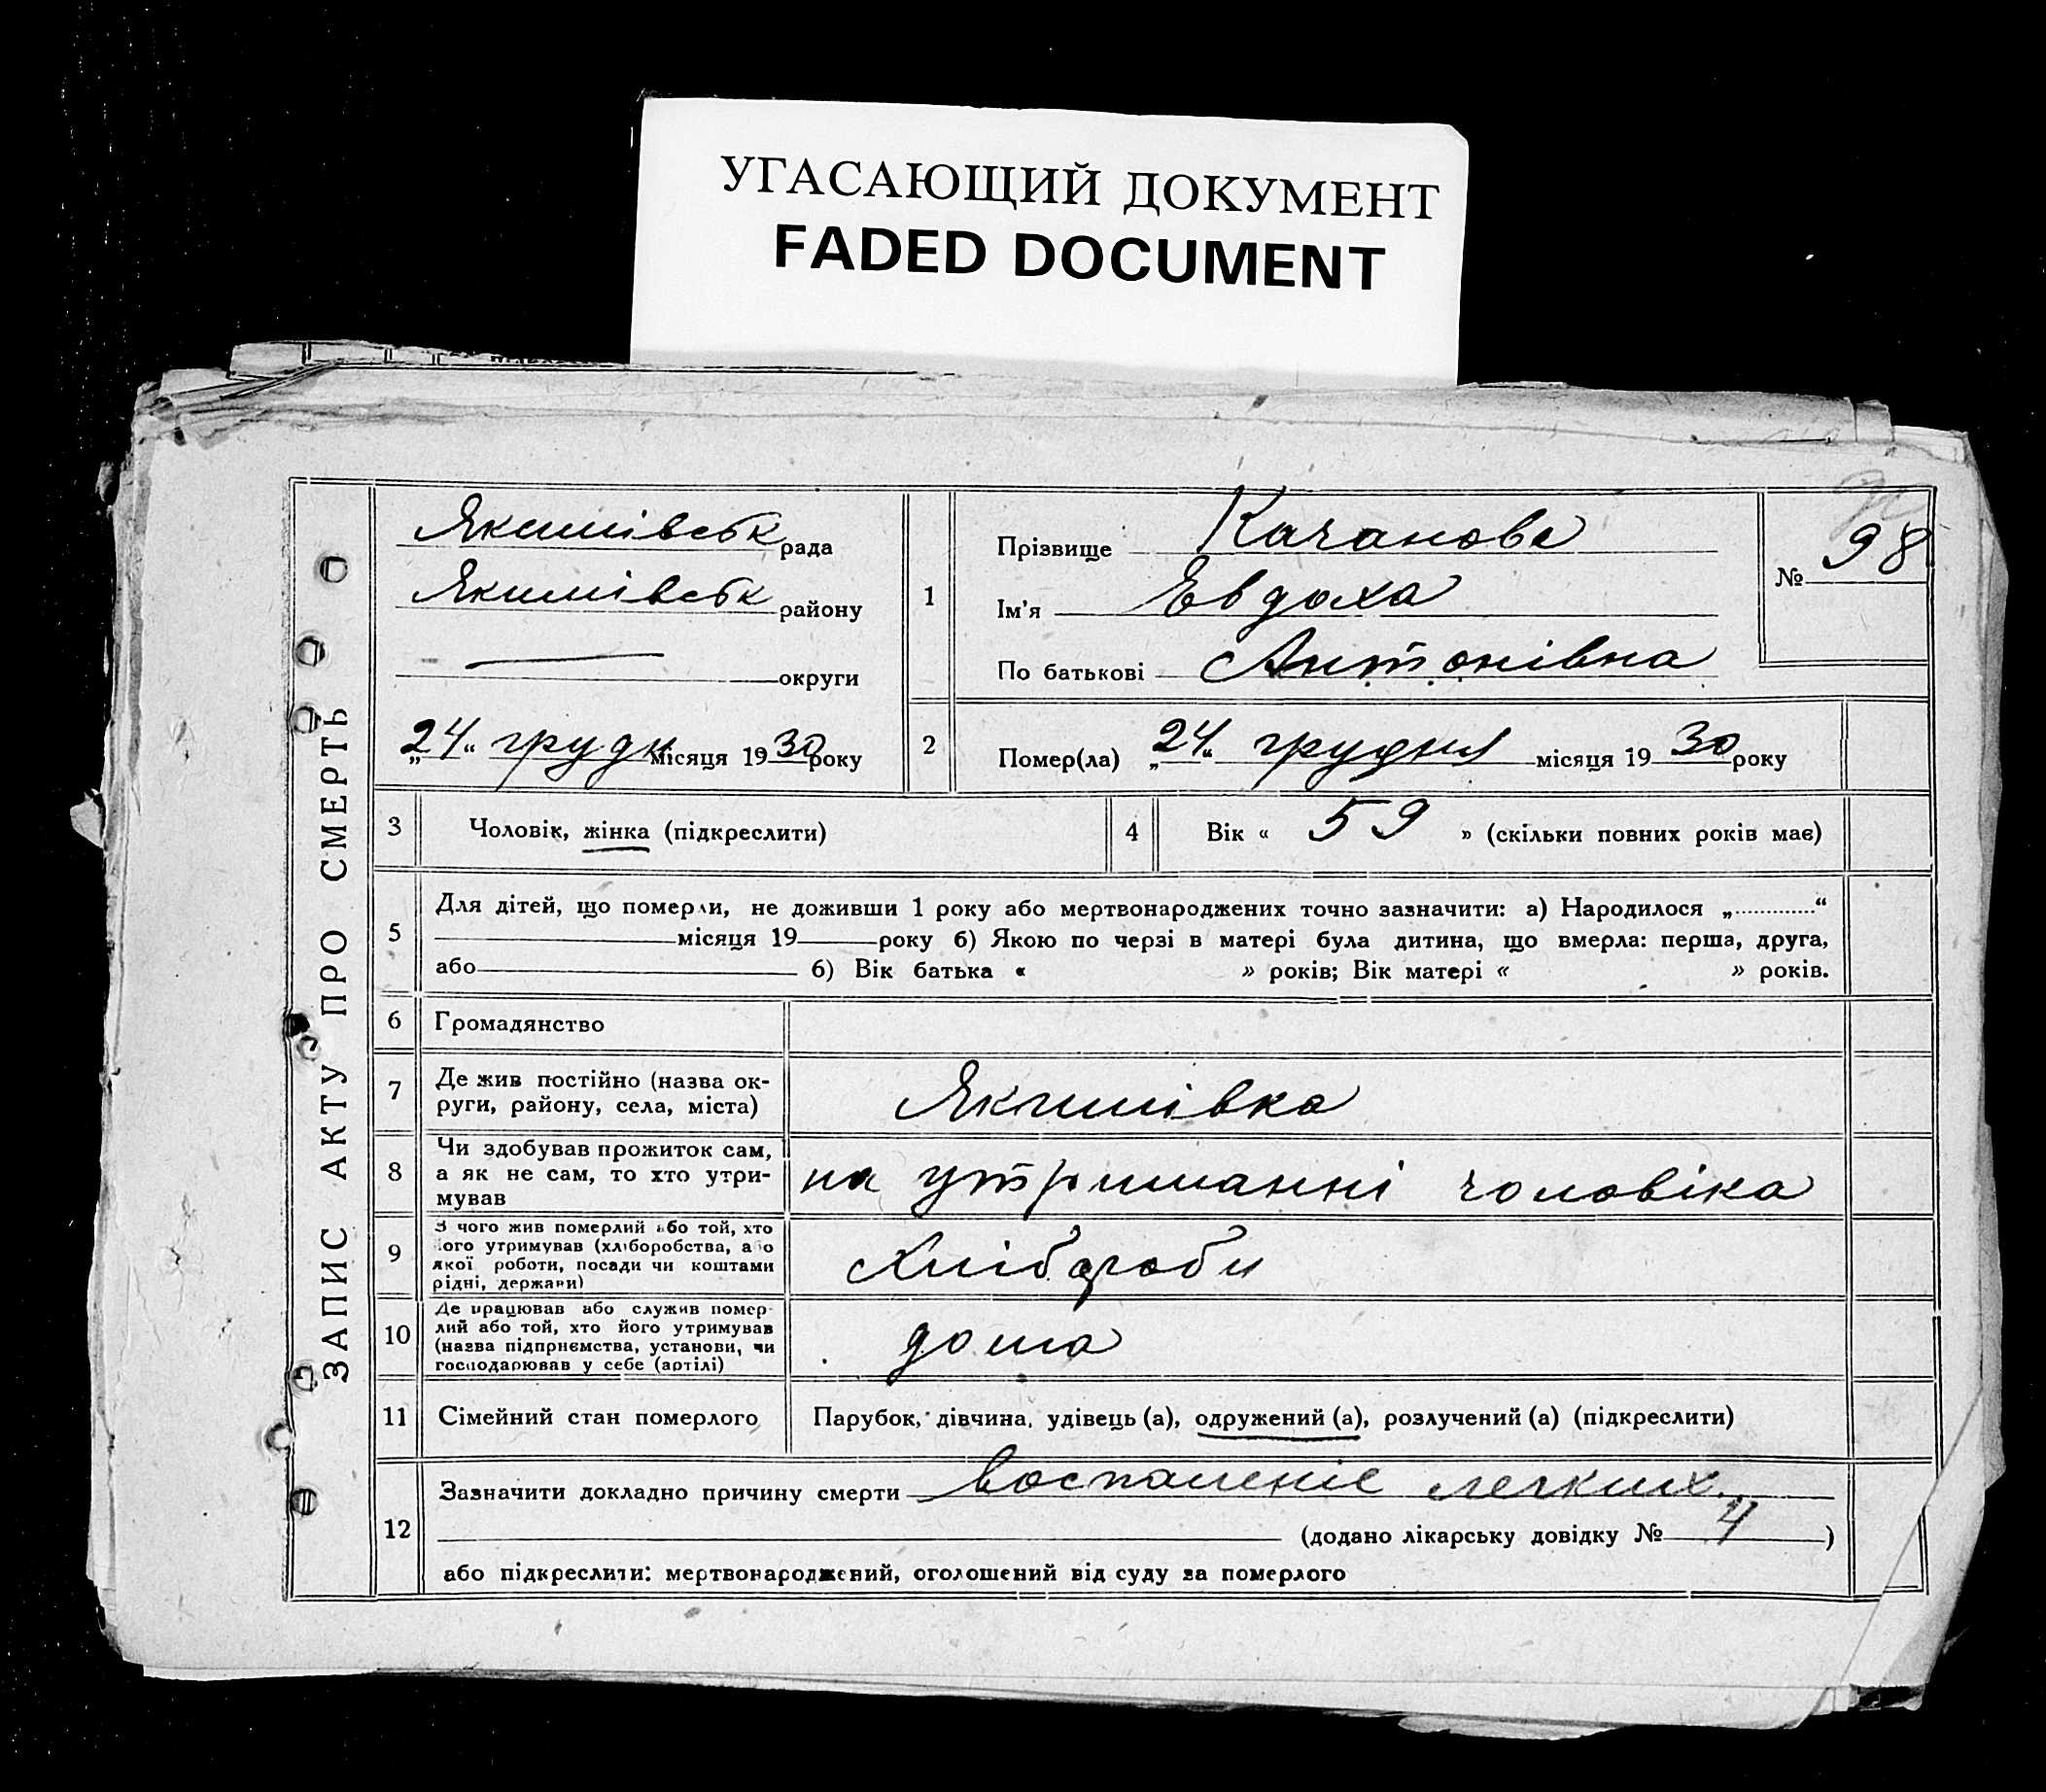 УГАСАЮЩИЙ ДОКУМЕНТ
FADED DOCUMENT
ЗАПИС АКТУ ПРО СМЕРТЬ
Якимівськ рада
Якимівськ району
— округи
„24“ грудн місяця 1930 року
1
Прізвище Качанова
Ім'я Евдоха
По батькові Антонівна
№ 98
2
Помер(ла) „24“ грудня місяця 1930 року
3
Чоловік, жінка (підкреслити)
4
Вік « 59 » (скільки повних років має)
5
Для дітей, що померли, не доживши 1 року або мертвонароджених точно зазначити: а) Народилося „............“
місяця 19 року б) Якою по черзі в матері була дитина, що вмерла: перша, друга,
або б) Вік батька « » років; Вік матері « » років.
6
Громадянство
7
Де жив постійно (назва ок-
руги, району, села, міста)
Якимівка
8
Чи здобував прожиток сам,
а як не сам, то хто утри-
мував
на утриманні чоловіка
9
З чого жив померлий або той, хто
його утримував (хліборобства, або
якої роботи, посади чи коштами
рідні, держави)
Хлібороби
10
Де працював або служив помер-
лий або той, хто його утримував
(назва підприємства, установи, чи
господарював у себе (артілі)
дома
11
Сімейний стан померлого
Парубок, дівчина, удівець (а), одружений (а), розлучений (а) (підкреслити)
12
Зазначити докладно причину смерти воспаленіе легких.
(додано лікарську довідку № 4 )
або підкреслити: мертвонароджений, оголошений від суду за померлого